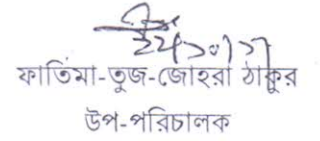 ফাতিমা-তুজ-জোহরা ঠাকুর
উপ-পরিচালক